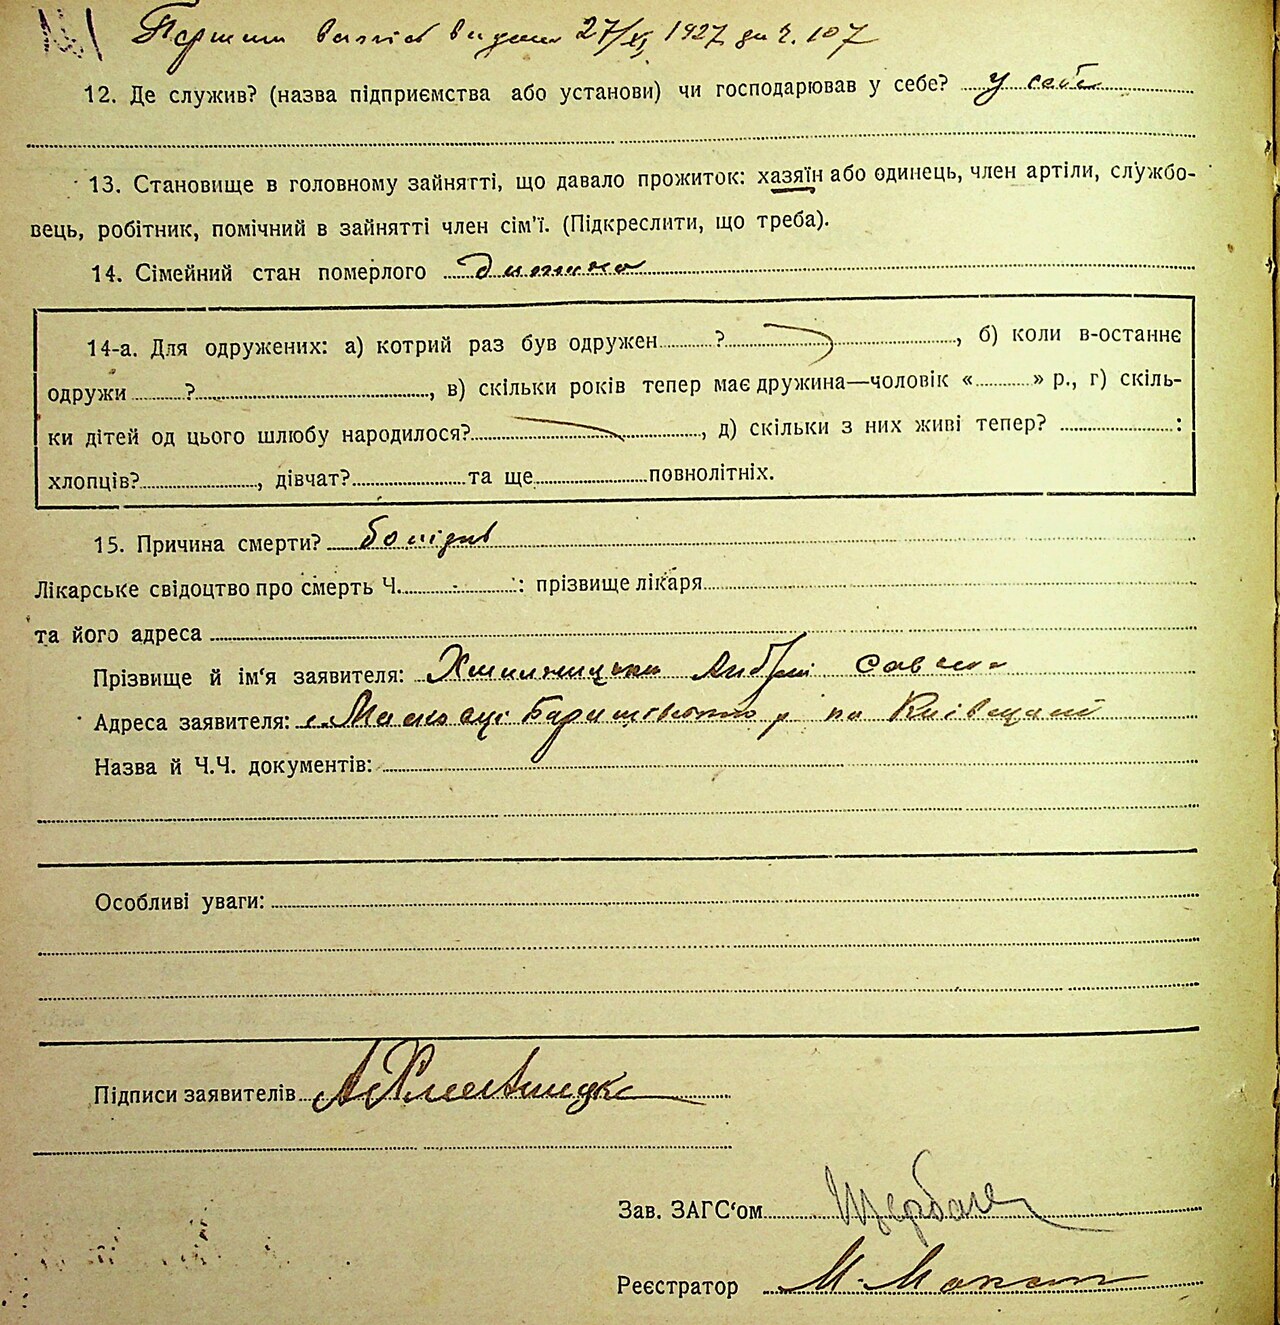 Перший витяг видано 27/XI 1927 за ч. 107
12. Де служив? (назва підприємства або установи) чи господарював у себе? у себе
13. Становище в головному зайнятті, що давало прожиток: хазяїн або одинець, член артіли, службо-
вець, робітник, помічний в зайнятті член сім'ї. (Підкреслити, що треба).
14. Сімейний стан померлого дитина
14-а. Для одружених: а) котрий раз був одружен ? , б) коли в-останнє
одружи ? , в) скільки років тепер має дружина—чоловік « » р., г) скіль-
ки дітей од цього шлюбу народилося? , д) скільки з них живі тепер? :
хлопців? , дівчат? та ще повнолітніх.
15. Причина смерти?
Лікарське свідоцтво про смерть Ч. : прізвище лікаря
та його адреса
Прізвище й ім'я заявителя: Андрій
Адреса заявителя: с. Баришівського р на Київщині
Назва й Ч.Ч. документів:
Особливі уваги:
Підписи заявителів
Зав. ЗАГС'ом Щербак
Реєстратор М.